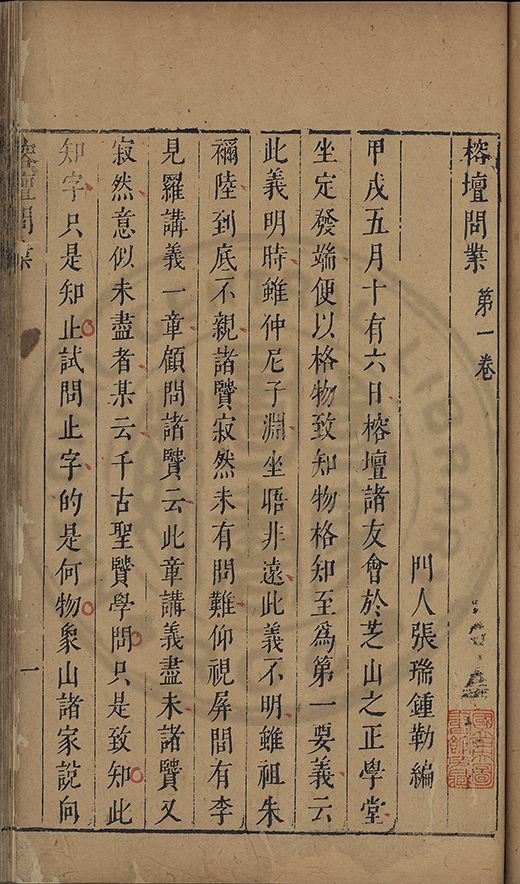 榕壇問業 第一卷
門人張瑞鍾勒編
甲戌五月十有六日榕壇諸友會於芝山之正學堂
坐定發端便以格物致知物格知至為第一要義云
此義明時雖仲尼子淵坐晤非遠此義不明雖祖朱
禰陸到底不親諸賢寂然未有問難仰視屏間有李
見羅講義一章顧問諸賢云此章講義盡未諸賢又
寂然意似未盡者某云千古聖賢學問只是致知此
知字只是知止試問止字的是何物象山諸家說向
榕壇問業
一